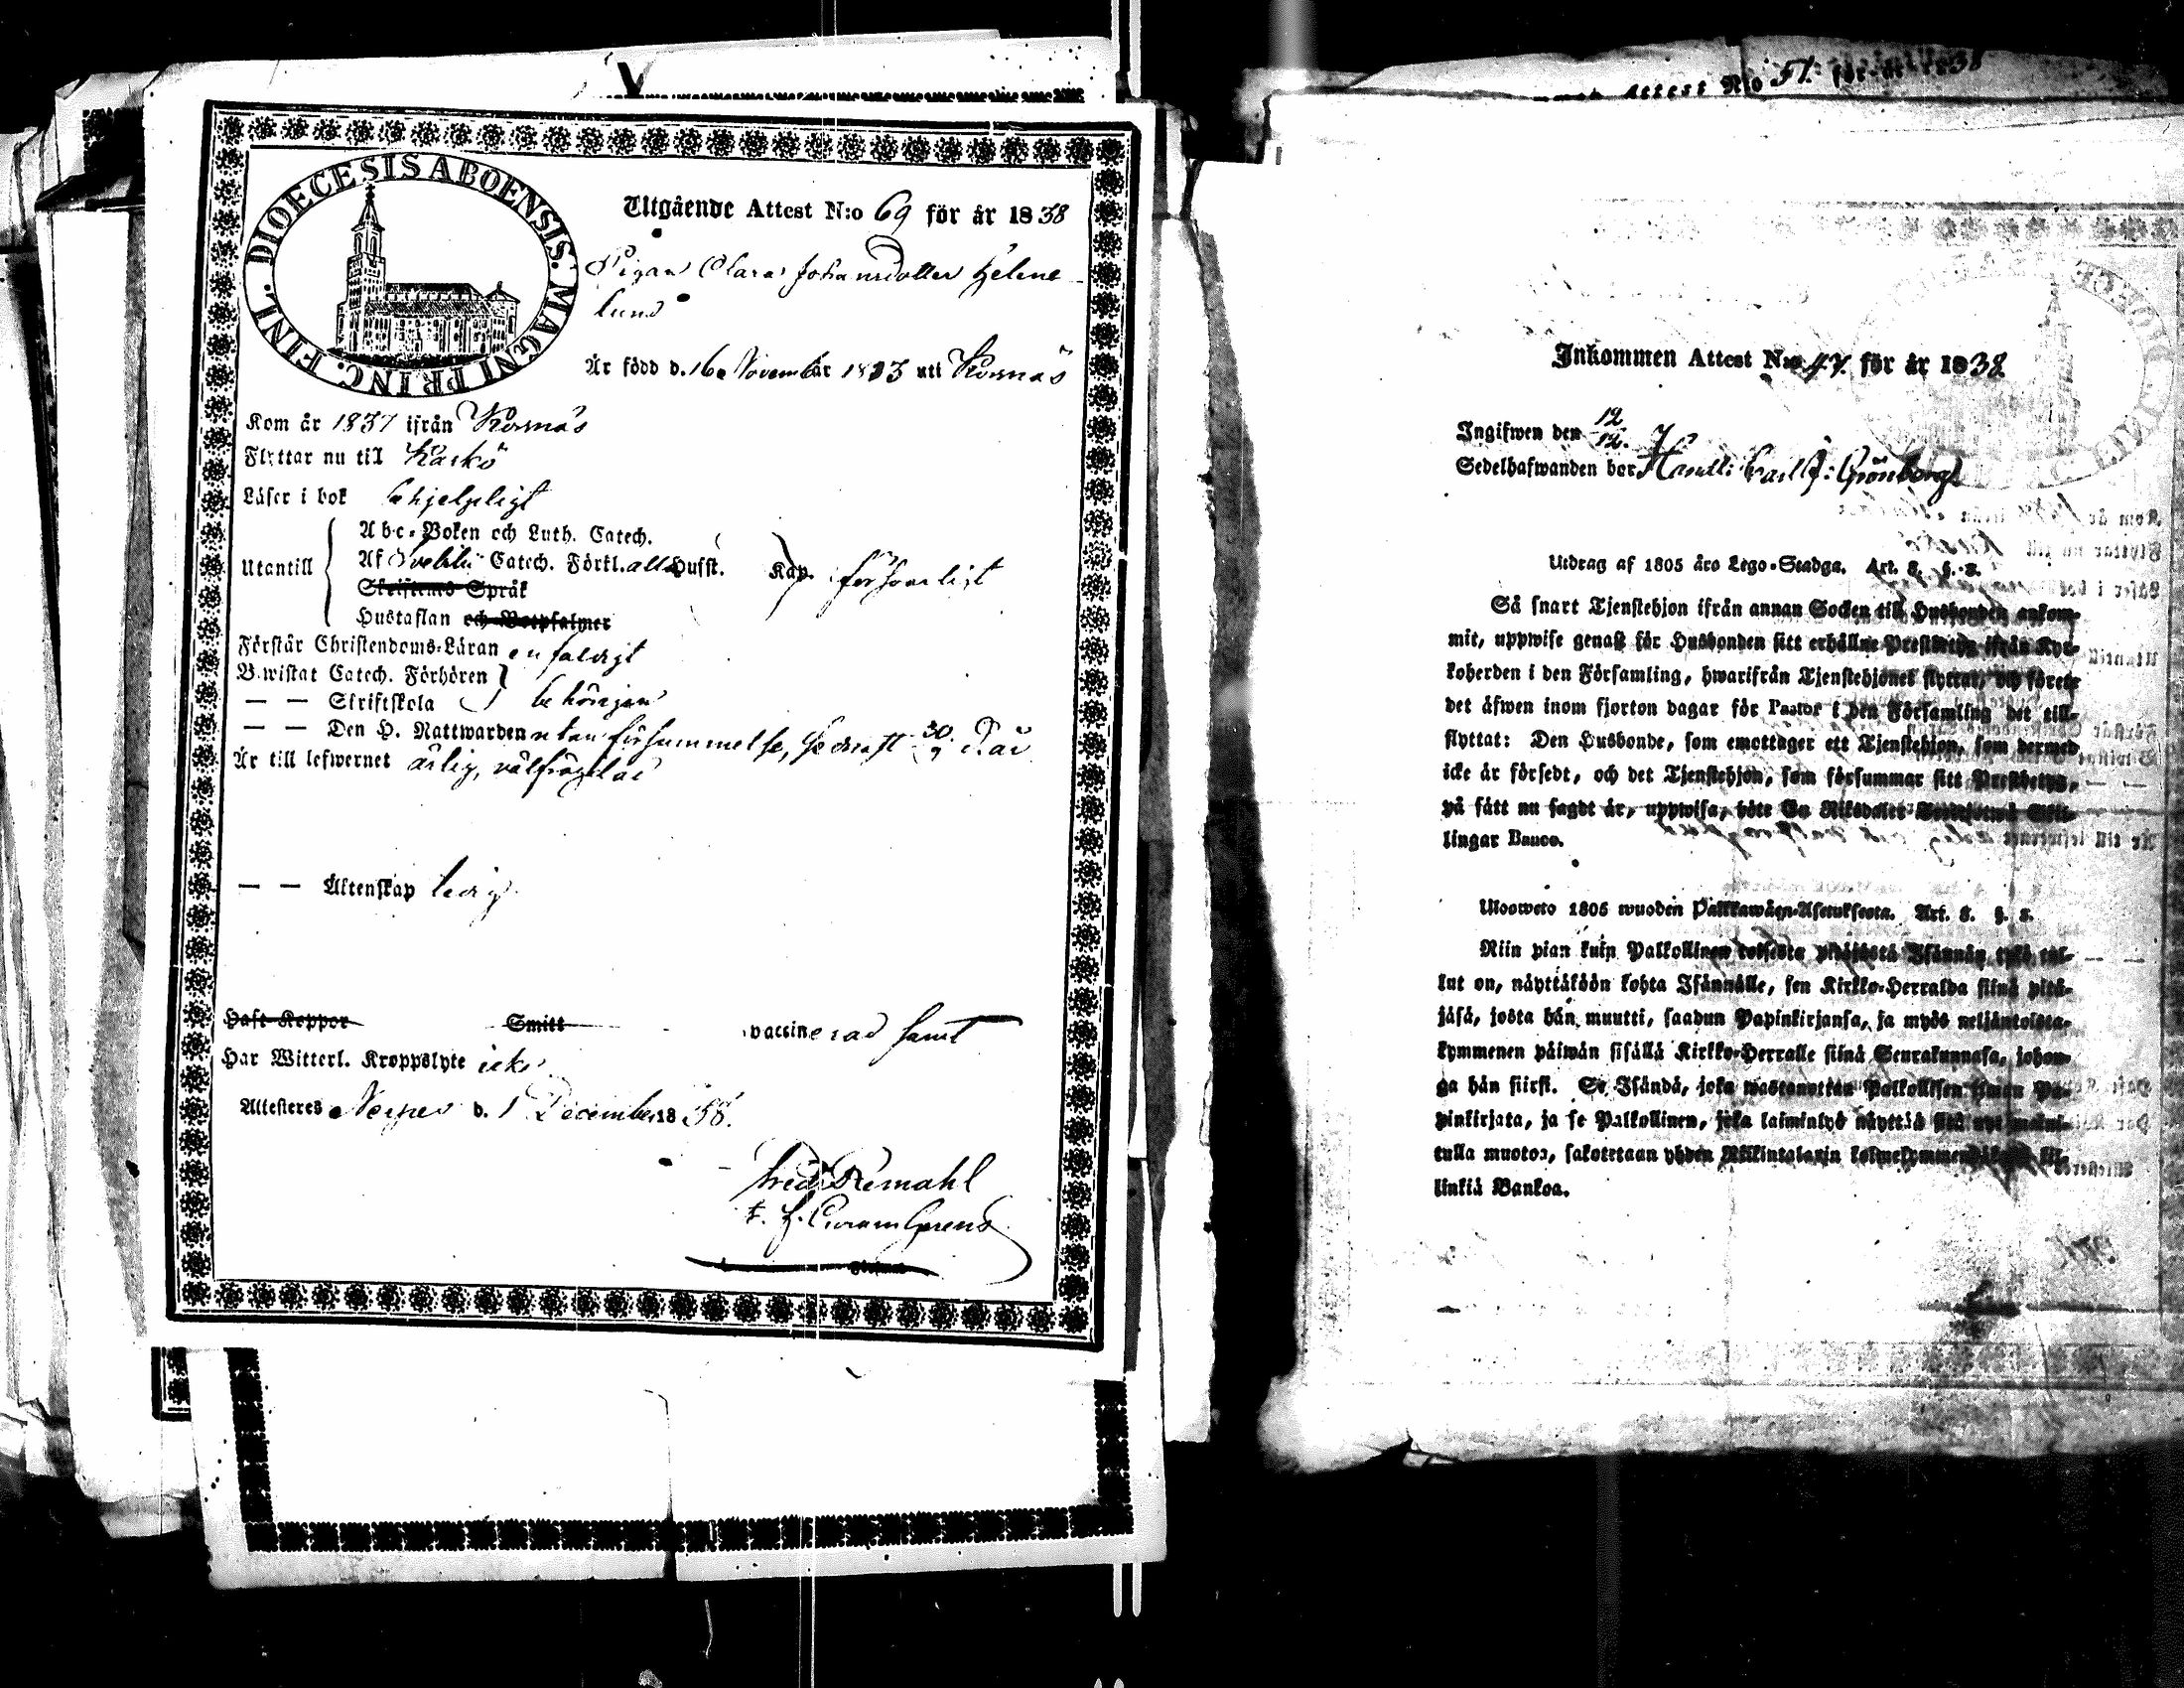 DIOECESIS ABOENSIS. MAGNI PRINC. FINL.
Utgående Attest N:o 69 för år 1838
Pigan Clara Johansdotter Helene
lund
Är född d. 16 November 1813 uti Korsnäs
Kom år 1837 ifrån Korsnäs
Flyttar nu till Kaskö
Läser i bok behjelpligt
Utantill
Abc-Boken och Luth. Catech.
Af Svebilii Catech. Förkl. alla Hufst. Kap. försvarligt
Skriftens Språk
Hustaflan och Botpsalmer
Förstår Christendoms-Läran enfaldigt
Bewistat Catech. Förhören
— — Skriftskola behörigen
— — Den H. Nattwarden utan försummelse, sednast 30/9 d. år
Är till lefwernet ärlig, välfrägdad
— — Äktenskap ledig
Haft Koppor Smitt vaccinerad samt
Har Witterl. Kroppslyte icke
Attesteres Nerpes d. 1 December 1838.
Fred: Remahl
t. f. Curam Gerens
Attest N:o 51. för år 1838
Inkommen Attest N:o 47. för år 1838
Ingifwen den 12/12.
Sedelhafwanden bor Handl: Carl J: Grönberg
Utdrag af 1805 års Lego-Stadga. Art. 8. §. 8.
Så snart Tjenstehjon ifrån annan Socken till Husbonden ankom-
mit, uppwise genast för Husbonden sitt erhållne Prestbetyg ifrån Kyr-
koherden i den Församling, hwarifrån Tjenstehjonet flyttat, och förete
det äfwen inom fjorton dagar för Pastor i den Församling det till-
flyttat: Den Husbonde, som emottager ett Tjenstehjon, som dermed
icke är försedt, och det Tjenstehjon, som försummar sitt Prestbetyg,
på sätt nu sagdt är, uppwisa, böte En Riksdaler Skil-
lingar Banco.
Ulosweto 1805 wuoden Palkkawäen-Asetuksesta. Art. 8. §. 8.
Niin pian kuin Palkollinen toisesta pitäjästä Isännän tykö tul-
lut on, näyttäköön kohta Isännälle, sen Kirkko-Herralda siinä pitä-
jäsä, josta hän muutti, saadun Papinkirjansa, ja myös neljäntoista-
kymmenen päiwän sisällä Kirkko-Herralle siinä Seurakunnasa, johon-
ga hän siirsi. Se Isändä, joka wastanottaa Palkollisen ilman Pa-
pinkirjata, ja se Palkollinen, joka laiminlyö näyttää sitä nyt maini-
tulla muotoa, sakotetaan yhden Riikintalarin kil-
linkiä Bankoa.